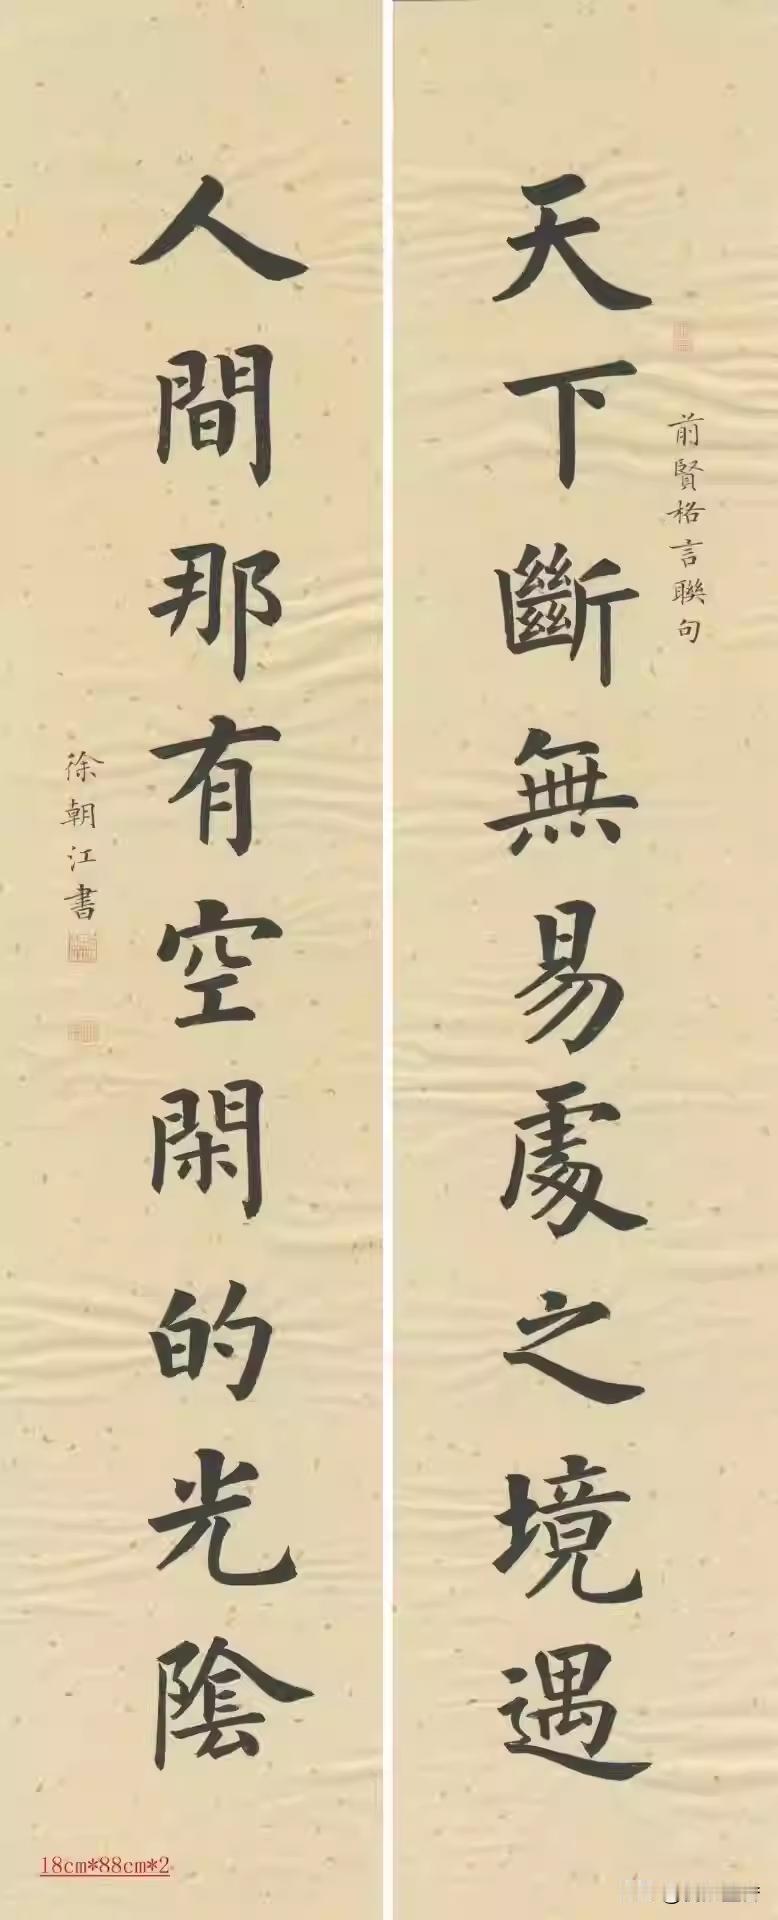 前賢格言聯句
天下斷無易處之境遇
人間那有空閑的光陰
徐朝江書
18cm*88cm*2